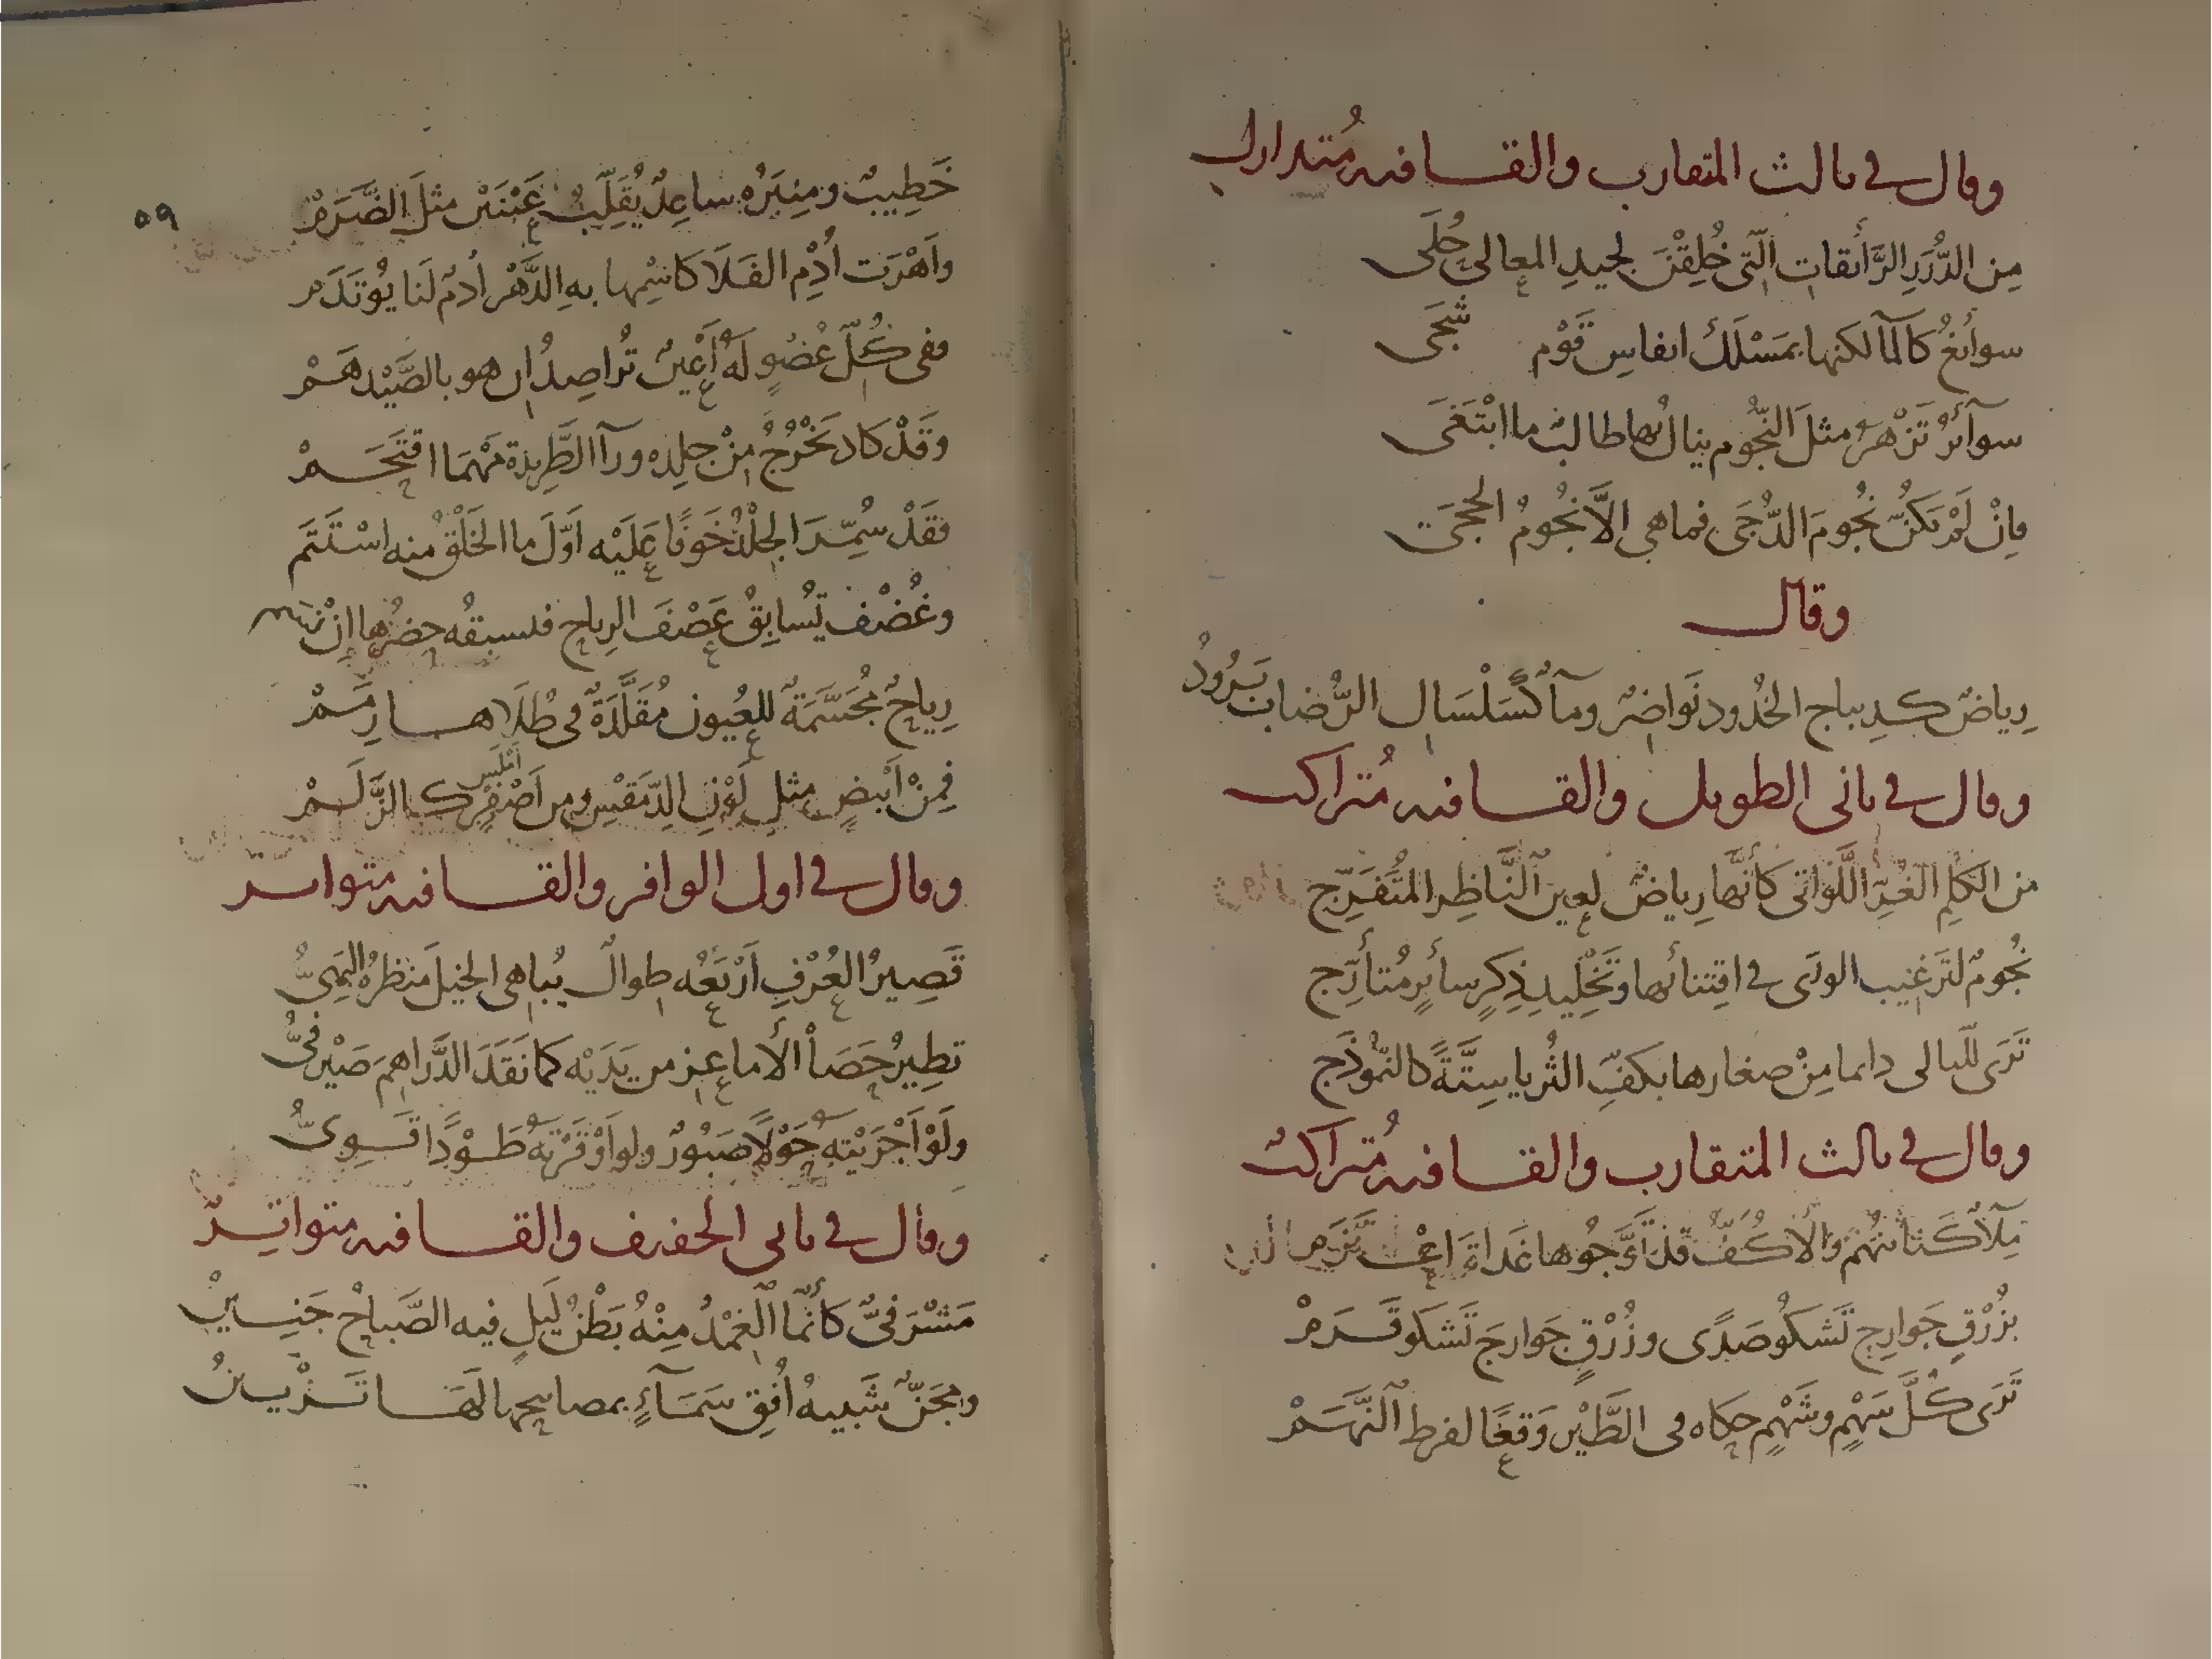 وقال في ثالث المتقارب والقافيه مُتدارك
مِن الدُّرَرِ الرَّائقاتِ الّتى خُلِقْنَ لجيدِ المعالى حُلَى
سوائغُ كالمآ لكنها بمَسْلَكِ انفاسِ قَوْم شَجَى
سوآئرُ تَزْهَرُ مثلَ النّجُوم ينالُ بها طالبٌ ما ابْتَغَى
فإنْ لَمْ تكُنّ نُجُومَ الدُّجَى فما هى الاَّ نُجُومُ الحجَى
وقال
رِياضٌ كدِيباج الخُدود نَواضِرٌ ومآءٌ كسَلْسَالِ الرُّضاب بَرُودُ
وقال في ثانى الطويل والقافيه مُتراكب
من الكَلِمِ الغُرِّ اللَّوَاتى كأنَّها رِياضٌ لعين النَّاظِر المتُفَرِّج
نُجُومٌ لتَرغيب الورَى في اقتنائها وتَخْلِيدِ ذِكرٍ سائرٍ مُتأرِّج
تَرَى للّيالى دايما مِنْ صغارها بكفِّ الثُريا ستَّةً كالنّموُذَج
وقال في ثالث المتقارب والقافيه مُتراكب
مِلآءٌ كَنائنهُم والأكُفُّ
بزُرْقٍ جَوارِحِ تَشكوُ صَدًى وزُرْقٍ جَوارحَ تَشكو قَرَمْ
تَرَى كُلَّ سَهْمٍ وشَهْمٍ حكاه فى الطَّيْرِ وَقعًا لفرط النَّهَمْ
٥٩
خَطِيبٌ ومِنبَرُه ساعِدٌ يُقَلِّبُ عَيْنَيْن مثلَ الضَّرَمْ
وَاهْرَت أُدْمِ الفَلا كاسْمِها بهِ الدَّهْرَ أُدمٌ لَنا يُوتَدَمْ
ففى كُلِّ عُضْوٍ لَهُ أَعْينٌ تُراصِدُ ان هو بالصَّيْد هَمْ
وَقَدْ كاد يَخْرُجُ مِنْ جلدِه ورآءَ الطَّرِيدة مَهْمَا اقتَحَمْ
فقَدْ سُمِّرَ الجِلْدُ خَوفًا عَلَيْه اَوّلَ ما الخَلْقُ منه اسْتَتَم
وغُضْف تُسَابِقُ عَصْفَ الرياح فيسبقُه حضرُها انْ
رِياحٌ مُجَسَّمَةٌ للعُيون مُقَلَّدَةٌ فى طُلاها رِمَمْ
فمِنْ اَبْيضٍ مثلِ لَوْنِ الدِّمَقْسِ ومن اَصْفَرٍ اَمْلَس كالزَّلَمْ
وقال في اول الوافر والقافيه متواتر
قَصِيرُ العُرْفِ اَرْبَعُه طِوالٌ يُباهى الخيلَ منظرُهُ البَهِىُّ
تطِيرُ حَصَا الأماعِزِ من يَدَيْه كما نَقَدَ الدَّراهِمَ صَيْرفىُّ
ولَوْ اَجْرَيْتهَ حَوْلاً صَبُورٌ ولو اَوْقَرْتَهُ طَوْدًا قَوِىُّ
وقال في ثانى الخفيف والقافيه متواتِرٌ
مَشْرَفىٌّ كأنّما الغِمْدُ مِنْهُ بَطْنُ لَيلٍ فيه الصَّباحُ جَنِينُ
ومِجَنٌّ شَبيهُ اُفقِ سَمَآءٍ بمصابيحها لَهَا تَزْيينُ